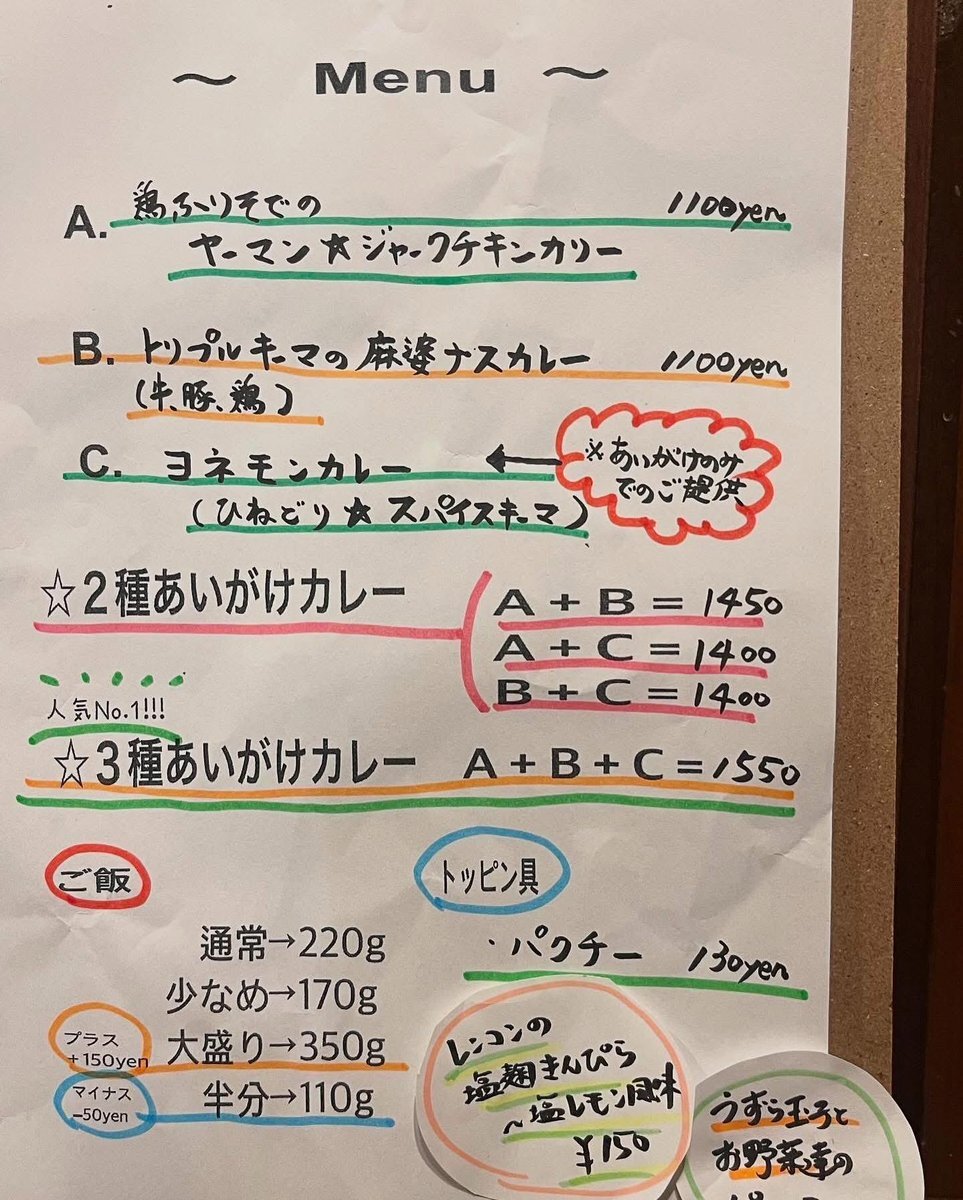 ～ Menu ～
A. 鶏ふりそでの 1100yen
ヤーマン☆ジャークチキンカリー
B. トリプルキーマの麻婆ナスカレー 1100yen
(牛、豚、鶏)
C. ヨネモンカレー ←
(ひねどり☆スパイスキーマ)
※あいがけのみ
でのご提供
☆2種あいがけカレー
A+B=1450
A+C=1400
B+C=1400
人気No.1!!!
☆3種あいがけカレー A+B+C=1550
ご飯
通常→220g
少なめ→170g
プラス
+150yen
大盛り→350g
マイナス
−50yen
半分→110g
トッピン具
・パクチー 130yen
レンコンの
塩麹きんぴら
～塩レモン風味
¥150
うずら玉子と
お野菜達の